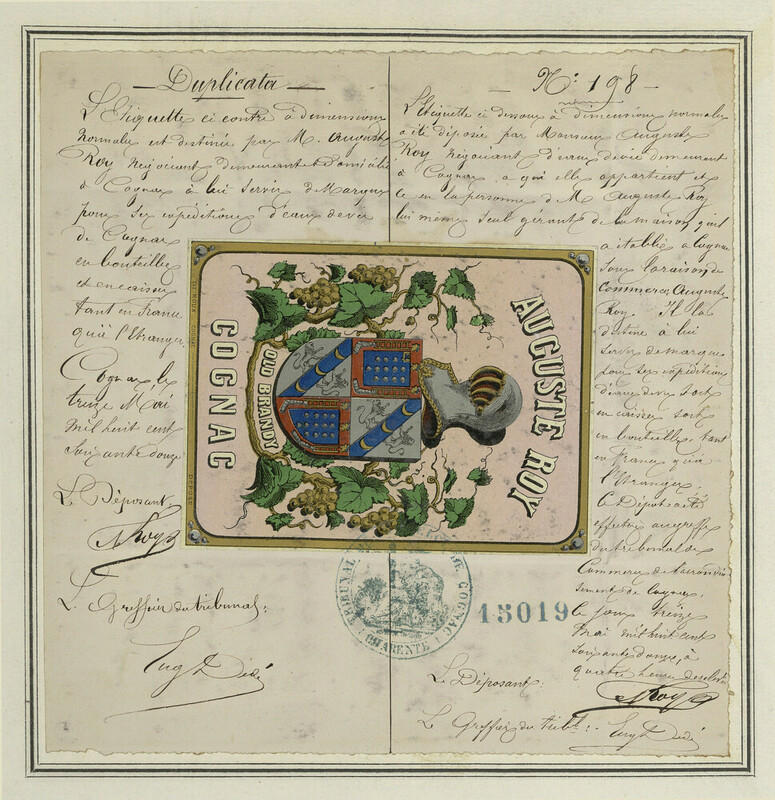 Duplicata
L'Etiquette ci contre à dimensions
normales est destinée par M. Auguste
Roy négociant demeurant & domicilié
à Cognac à lui servir de Marque
pour ses expéditions d'eaux de vie
de Cognac
en bouteilles
et en caisses
tant en France
qu'à l'Etranger.
Cognac le
treize Mai
mil huit cent
soixante douze
Le Déposant
ARoy
Le Greffier du tribunal:
Eug Dédé
N: 198
L'Etiquette ci dessous à dimensions normales
a été déposée par Monsieur Auguste
Roy négociant d'eaux de vie demeurant
à Cognac, a qui elle appartient et
ce en la personne de M Auguste Roy
lui même seul gérant de la maison qu'il
a établie a Cognac
sous la raison de
Commerce, Auguste
Roy. Il la
destine à lui
servir de marque
pour ses expéditions
d'eaux de vie soit
en caisses soit
en bouteilles tant
en France qu'à
l'Etranger.
Ce Dépot a été
effectué au greffe
du tribunal de
Commerce de l'arrondis
sement de Cognac,
le jour treize
Mai mil huit cent
soixante douze, à
quatre heures de relevée
Le Déposant:
ARoy
Le Greffier du trib^l:
Eug Dédé
AUGUSTE ROY
OLD BRANDY
COGNAC
DÉPOSÉ
TRIBUNAL DE COGNAC
(CHARENTE)
15019